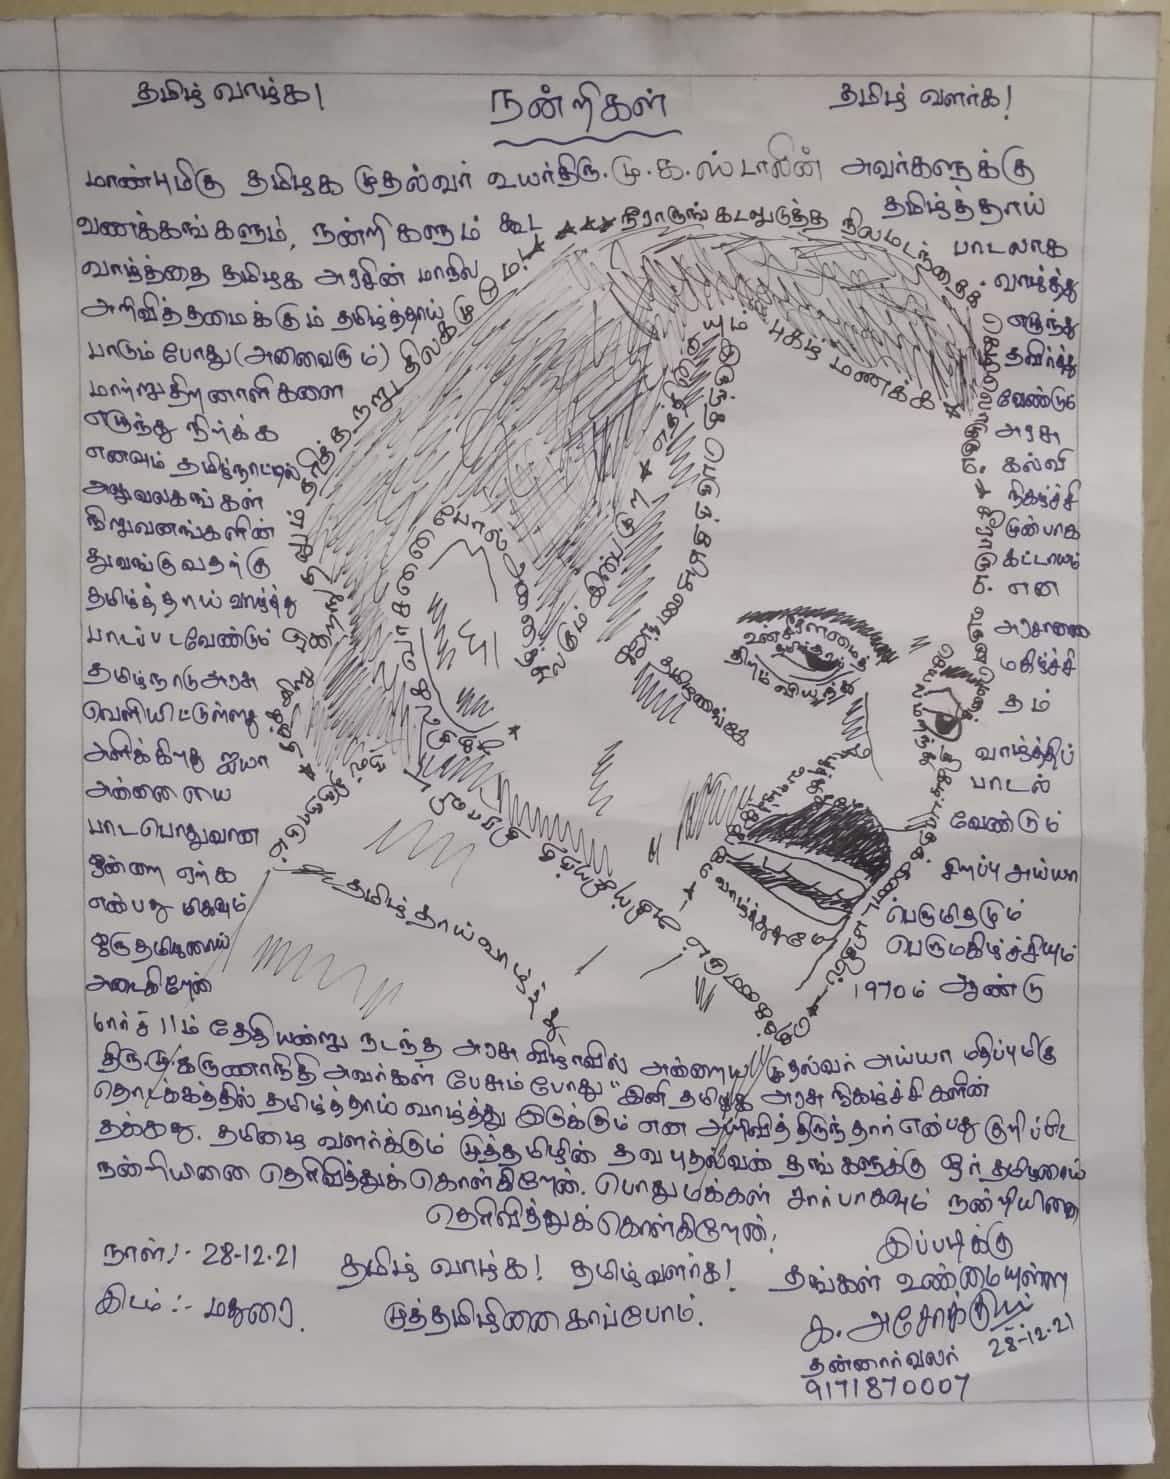 தமிழ் வாழ்க! நன்றிகள் தமிழ் வளர்க!
மாண்புமிகு தமிழக முதல்வர் உயர்திரு.மு.க.ஸ்டாலின் அவர்களுக்கு
வணக்கங்களும், நன்றிகளும் கூட தமிழ்த்தாய்
வாழ்த்தை தமிழக அரசின் மாநில பாடலாக
அறிவித்தமைக்கும் தமிழ்த்தாய் வாழ்த்து
பாடும் போது (அனைவரும்) எழுந்து
மாற்றுதிறனாளிகளை தவிர்த்து
எழுந்து நிற்க வேண்டும்
எனவும் தமிழ்நாட்டில் அரசு
அலுவலகங்கள் கல்வி
நிறுவனங்களின் நிகழ்ச்சி
துவங்குவதற்கு முன்பாக
தமிழ்த்தாய் வாழ்த்து கட்டாயம்
பாடப்படவேண்டும் என
தமிழ்நாடு அரசு அரசாணை
வெளியிட்டுள்ளது மகிழ்ச்சி
அளிக்கிறது ஐயா தம்
அன்னையை வாழ்த்திப்
பாட பொதுவான பாடல்
ஒன்றை ஏற்க வேண்டும்
என்பது மிகவும் சிறப்பு அய்யா
ஒரு தமிழனாய் பெருமிதமும்
அடைகிறேன் பெருமகிழ்ச்சியும்
1970ம் ஆண்டு
மார்ச் 11ம் தேதியன்று நடந்த அரசு விழாவில் அன்றைய முதல்வர் அய்யா மதிப்புமிகு
திரு.மு.கருணாநிதி அவர்கள் பேசும்போது "இனி தமிழக அரசு நிகழ்ச்சிகளின்
தொடக்கத்தில் தமிழ்த்தாய் வாழ்த்து இருக்கும் என அறிவித்திருந்தார் என்பது குறிப்பிட
தக்கது. தமிழை வளர்க்கும் முத்தமிழின் தவ புதல்வன் தங்களுக்கு ஓர் தமிழனாய்
நன்றியினை தெரிவித்துக்கொள்கிறேன். பொதுமக்கள் சார்பாகவும் நன்றியினை
தெரிவித்துக்கொள்கிறேன்.
நாள்:- 28-12-21 தமிழ் வாழ்க! தமிழ் வளர்க! இப்படிக்கு
தங்கள் உண்மையுள்ள
இடம்:- மதுரை. முத்தமிழினை காப்போம்.
க. அசோக்குமார்
28-12-21
தன்னார்வலர்
9171870007
நீராருங் கடலுடுத்த நிலமடந்தைக் கெழிலொழுகும்
சீராரும் வதனமெனத் திகழ்பரதக்கண்டமதில்
புகழ் மணக்க
இருந்த பெருந் தமிழணங்கே
தமிழணங்கே
உன் சீரிளமைத்
திறம் வியந்து
செயல்மறந்து
வாழ்த்துதுமே
தமிழ்தாய் வாழ்த்து